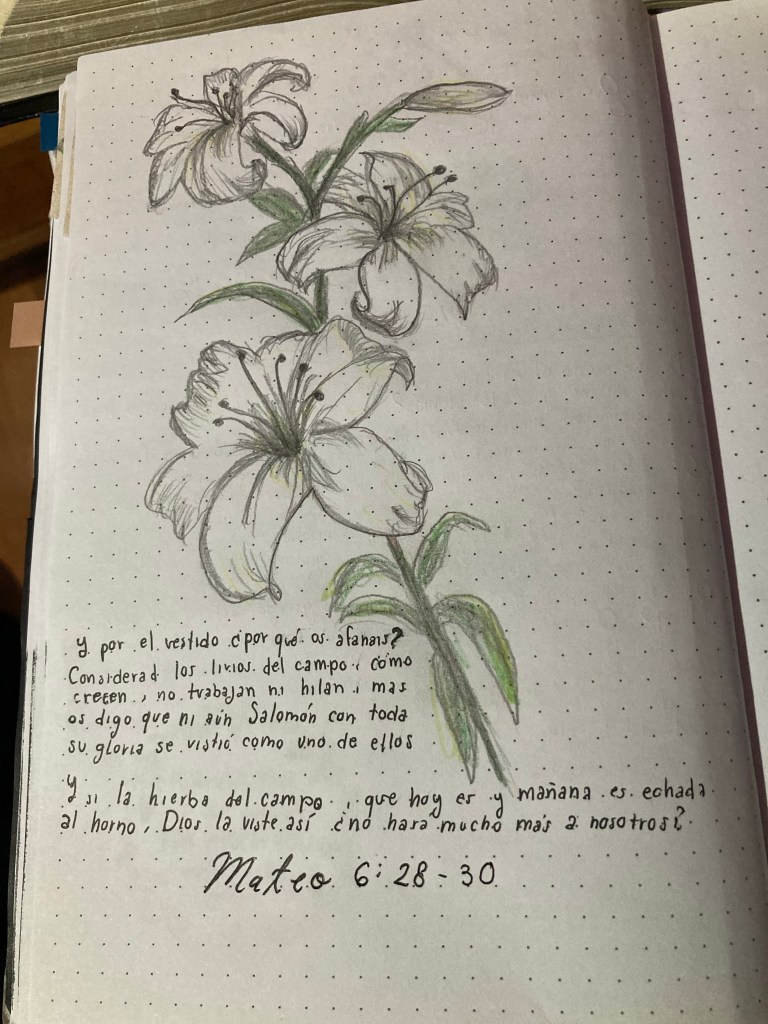 Y por el vestido ¿por qué os afanais?
Considerad los lirios del campo, como
crecen, no trabajan ni hilan, mas
os digo que ni aún Salomón con toda
su gloria se vistió como uno de ellos
Y si la hierba del campo, que hoy es y mañana es echada
al horno, Dios la viste así ¿no hará mucho más a nosotros?
Mateo 6:28-30